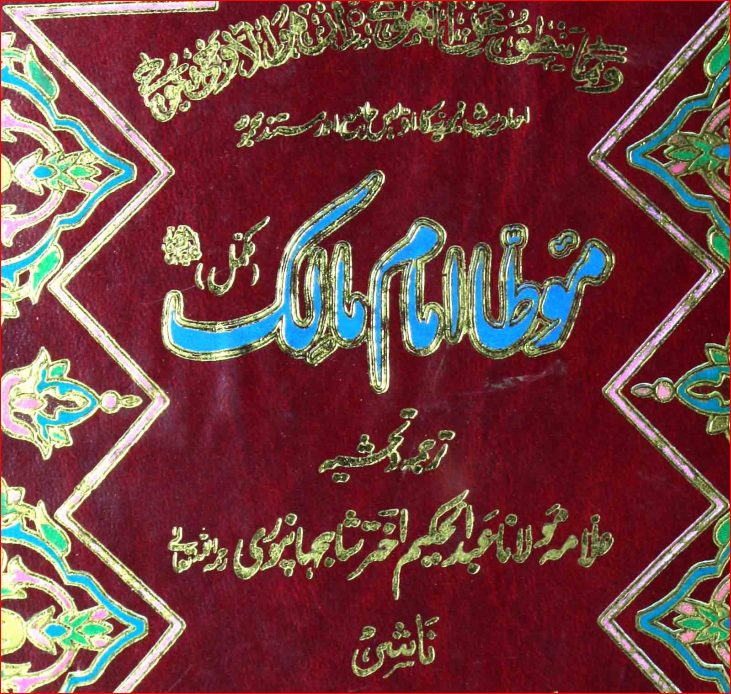 وما ينطق عن الهوى ان هو الا وحي يوحى
احادیث نبویہ کا اولین جامع اور مستند مجموعہ
مؤطّا امام مالک (مکمل)
ترجمہ و تحشیہ
علامہ مولانا عبد الحکیم اختر شاہجہانپوری
ناشر